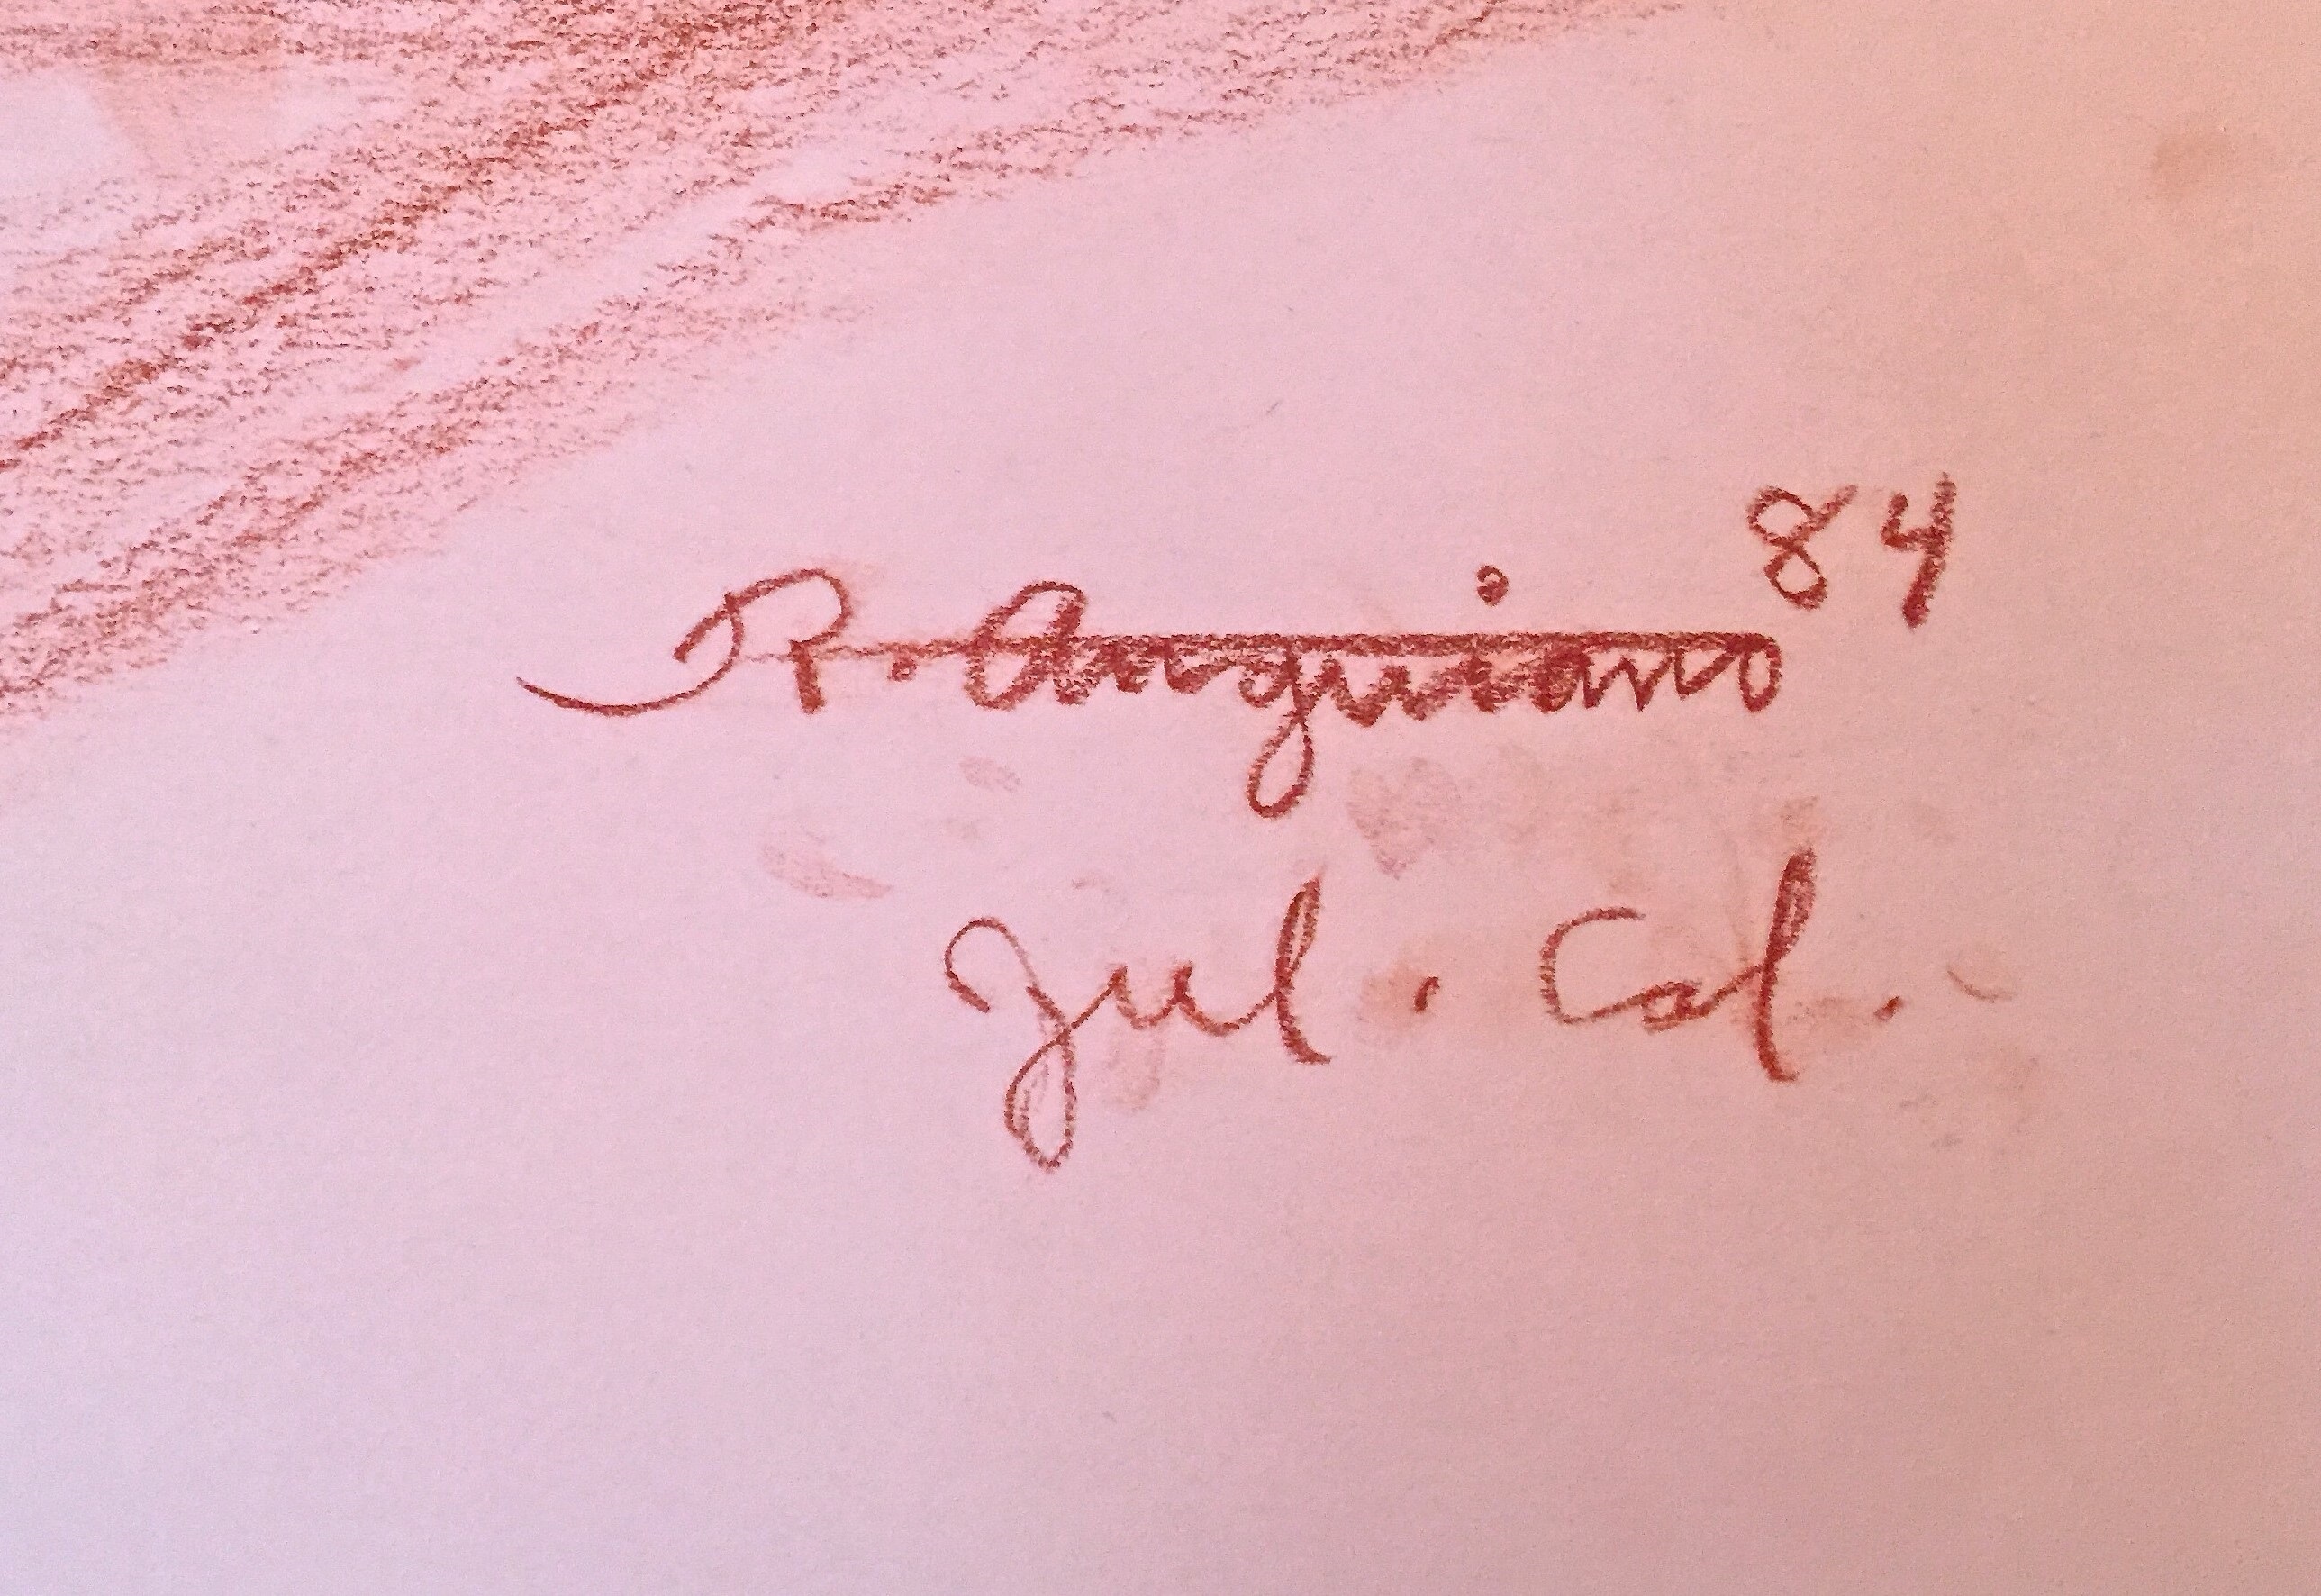 R. Anguiano 84
Jul. Cal.